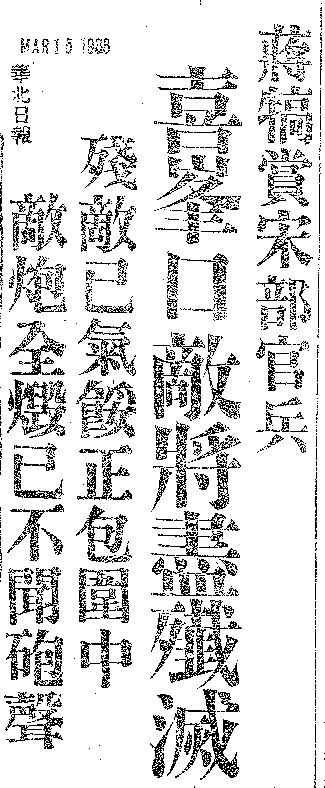 蔣犒賞宋部官兵
喜峯口敵將盡殲滅
殘敵已氣餒正包圍中
敵炮全燬已不聞砲聲
MAR 15
華北日報